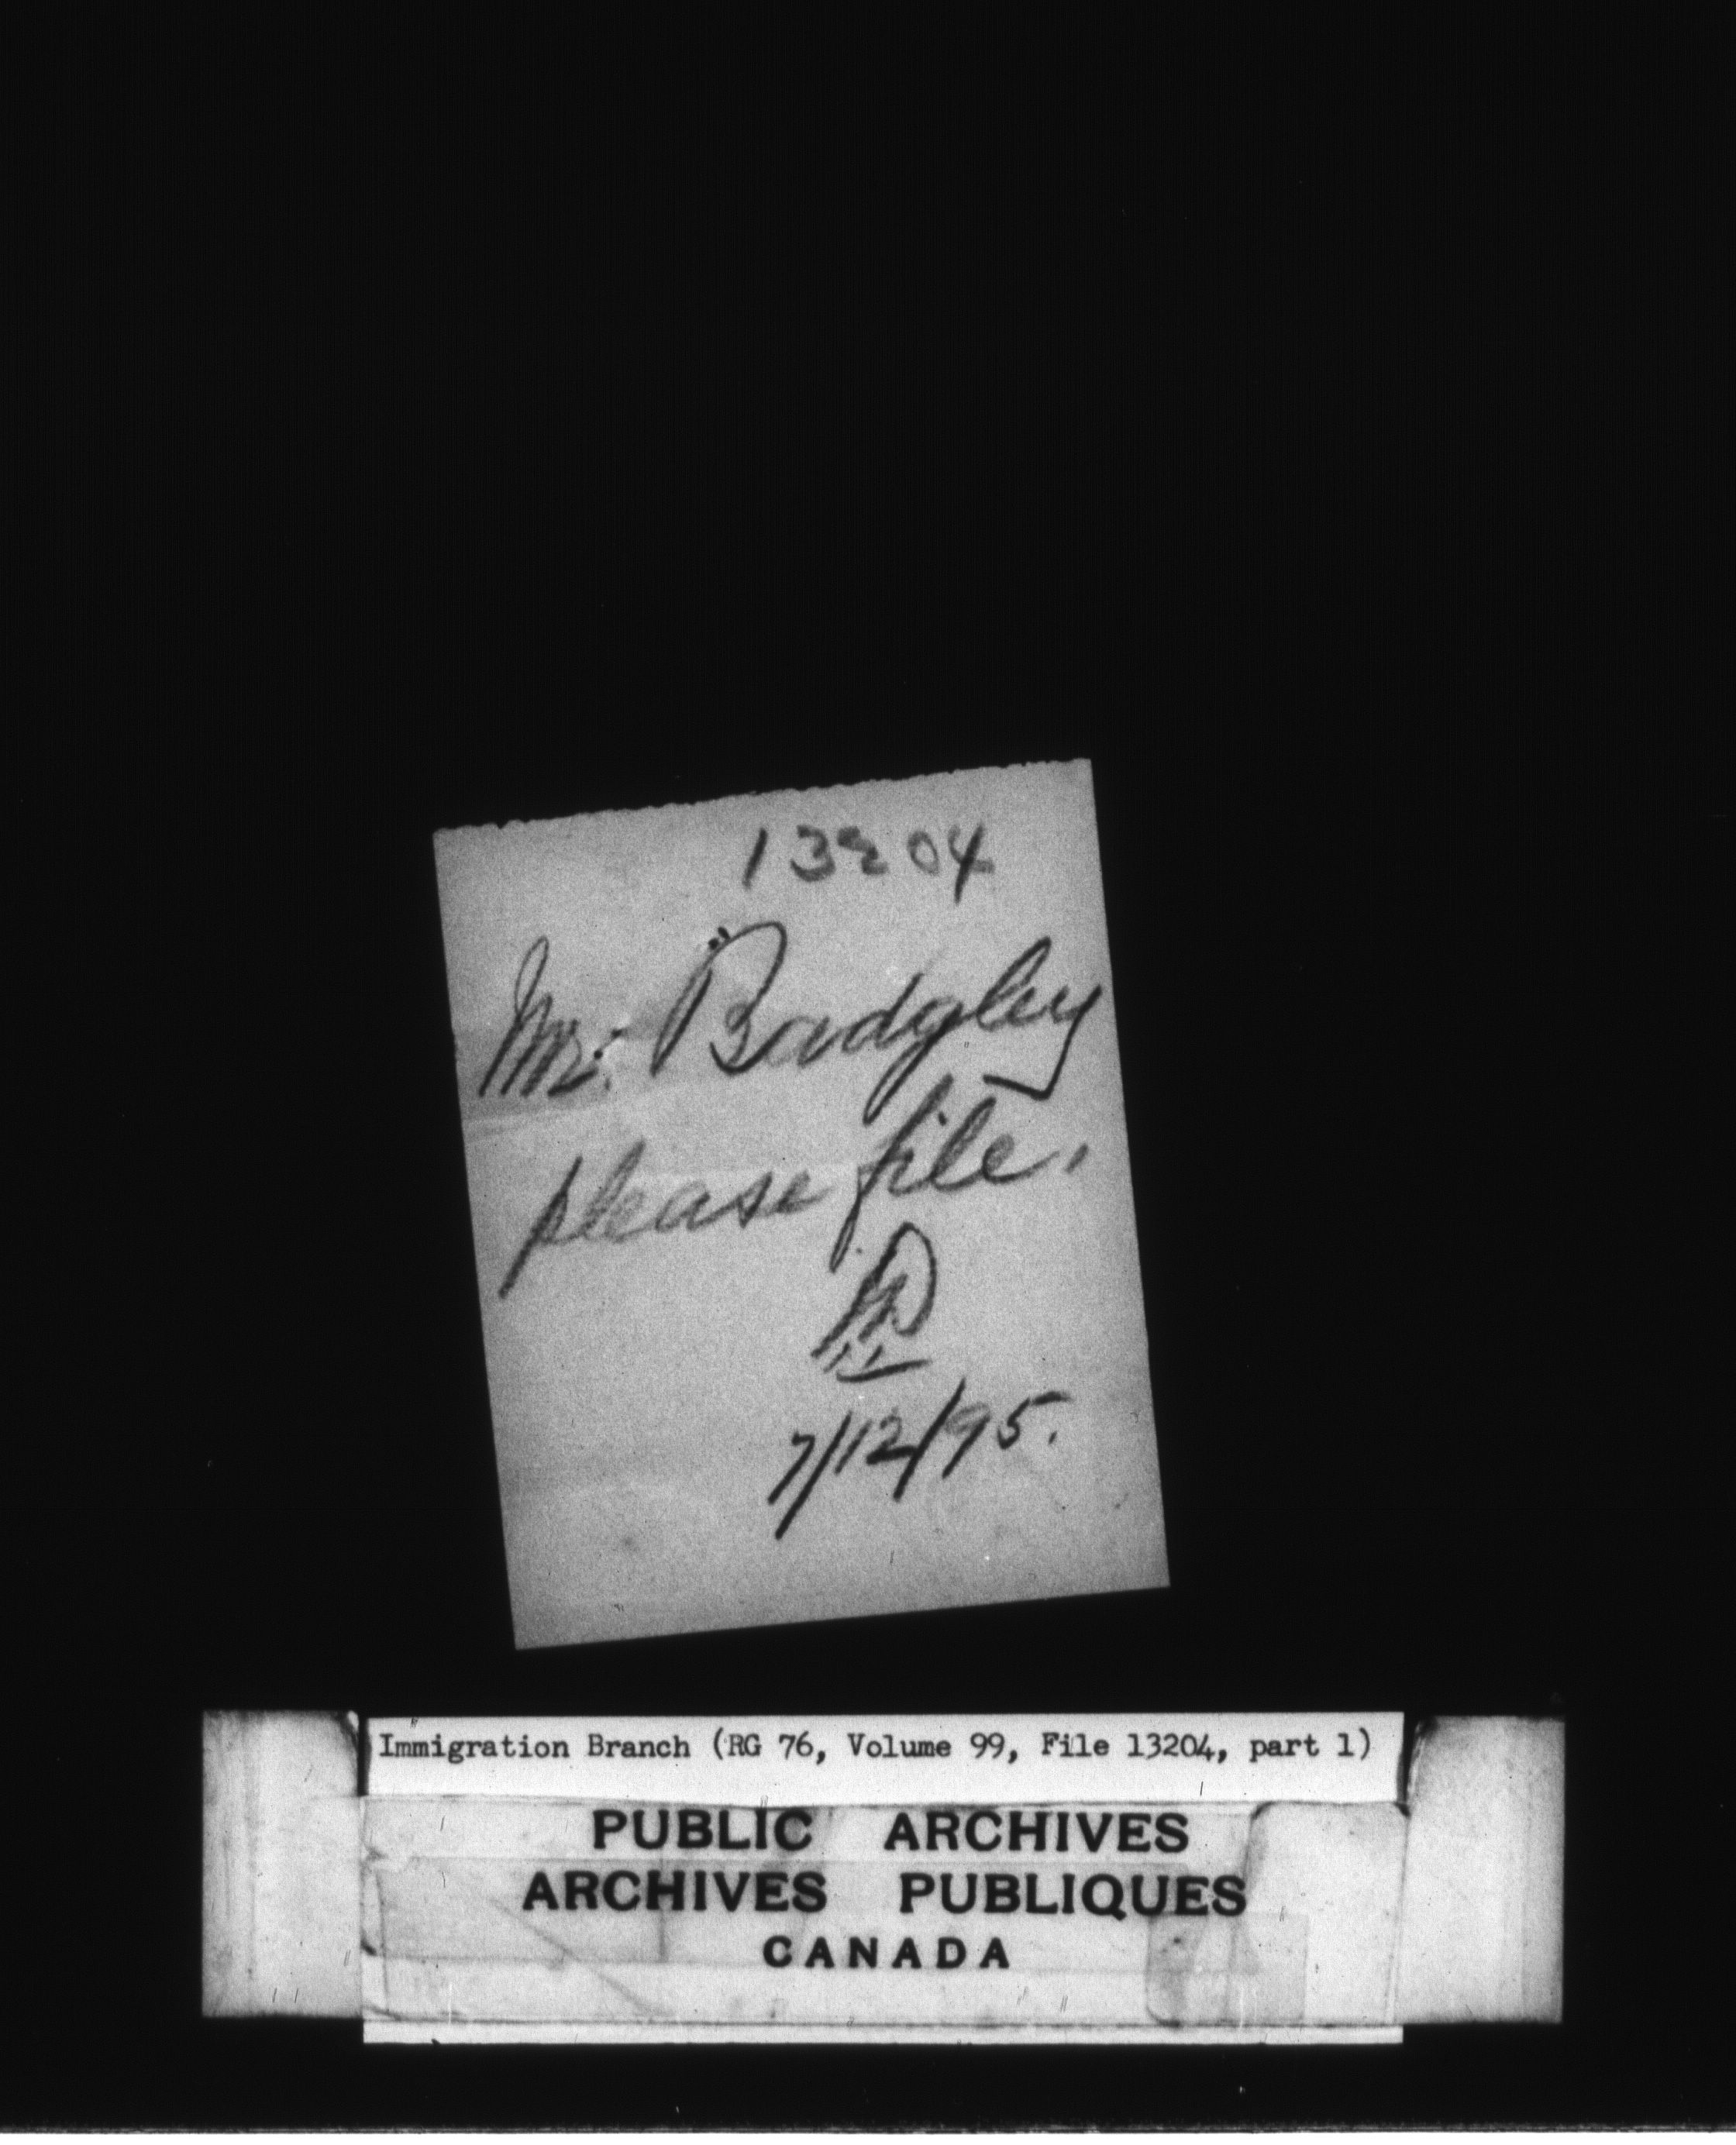 13204
Mr. Badgley
please file.
7/12/95.
Immigration Branch (RG 76, Volume 99, File 13204, part 1)
PUBLIC ARCHIVES
ARCHIVES PUBLIQUES
CANADA